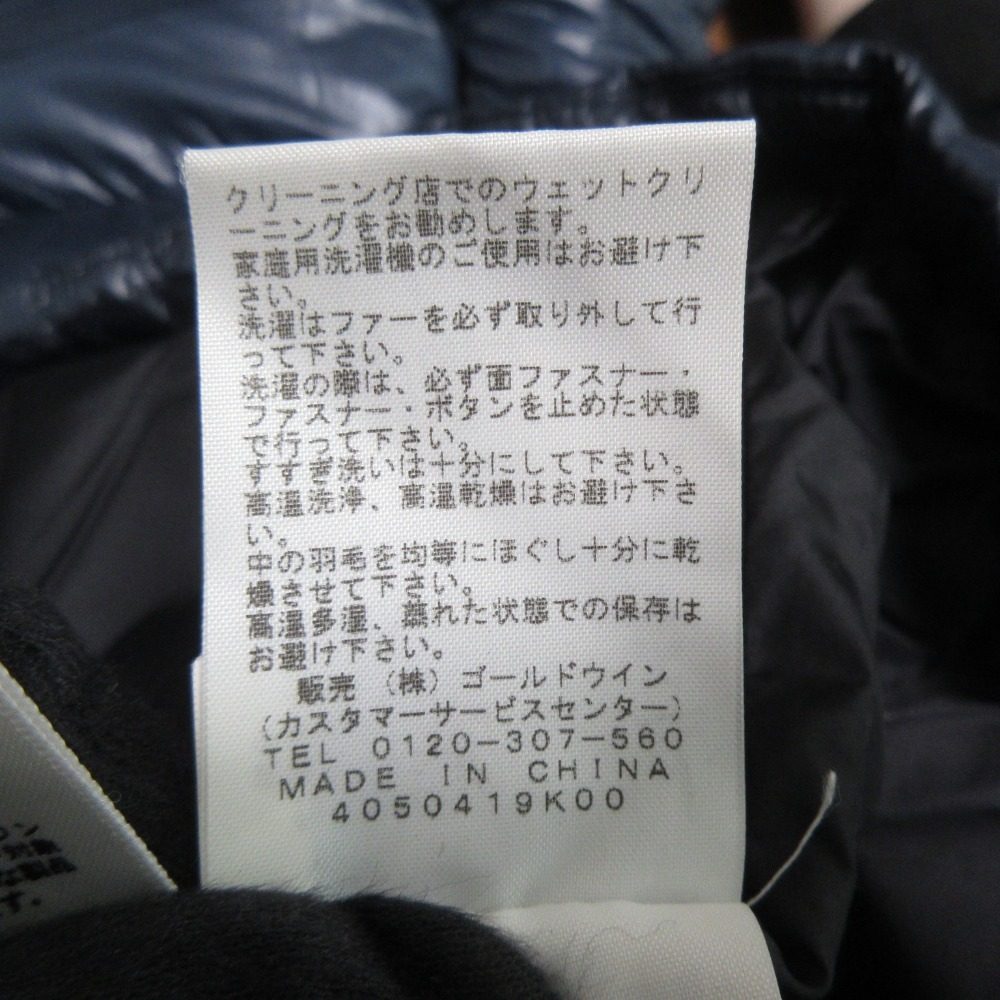 クリーニング店でのウェットクリ
ーニングをお勧めします。
家庭用洗濯機のご使用はお避け下
さい。
洗濯はファーを必ず取り外して行
って下さい。
洗濯の際は、必ず面ファスナー・
ファスナー・ボタンを止めた状態
で行って下さい。
すすぎ洗いは十分にして下さい。
高温洗浄、高温乾燥はお避け下さ
い。
中の羽毛を均等にほぐし十分に乾
燥させて下さい。
高温多湿、蒸れた状態での保存は
お避け下さい。
販売 (株) ゴールドウイン
(カスタマーサービスセンター)
TEL 0120-307-560
MADE IN CHINA
4050419K00
ン
対象
な製品
す.